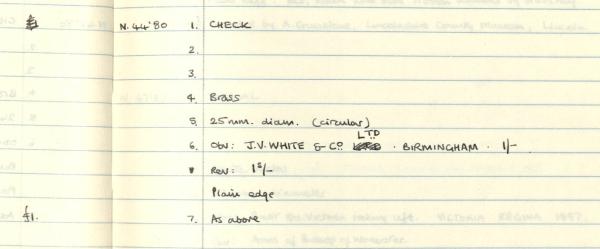 N.44'80 1. CHECK
2.
3.
4. Brass
5. 25mm. diam. (circular)
LTD
6. Obv: J.V. WHITE & Co. · BIRMINGHAM · 1/-
Rev: 1s/-
Plain edge
£1. 7. As above